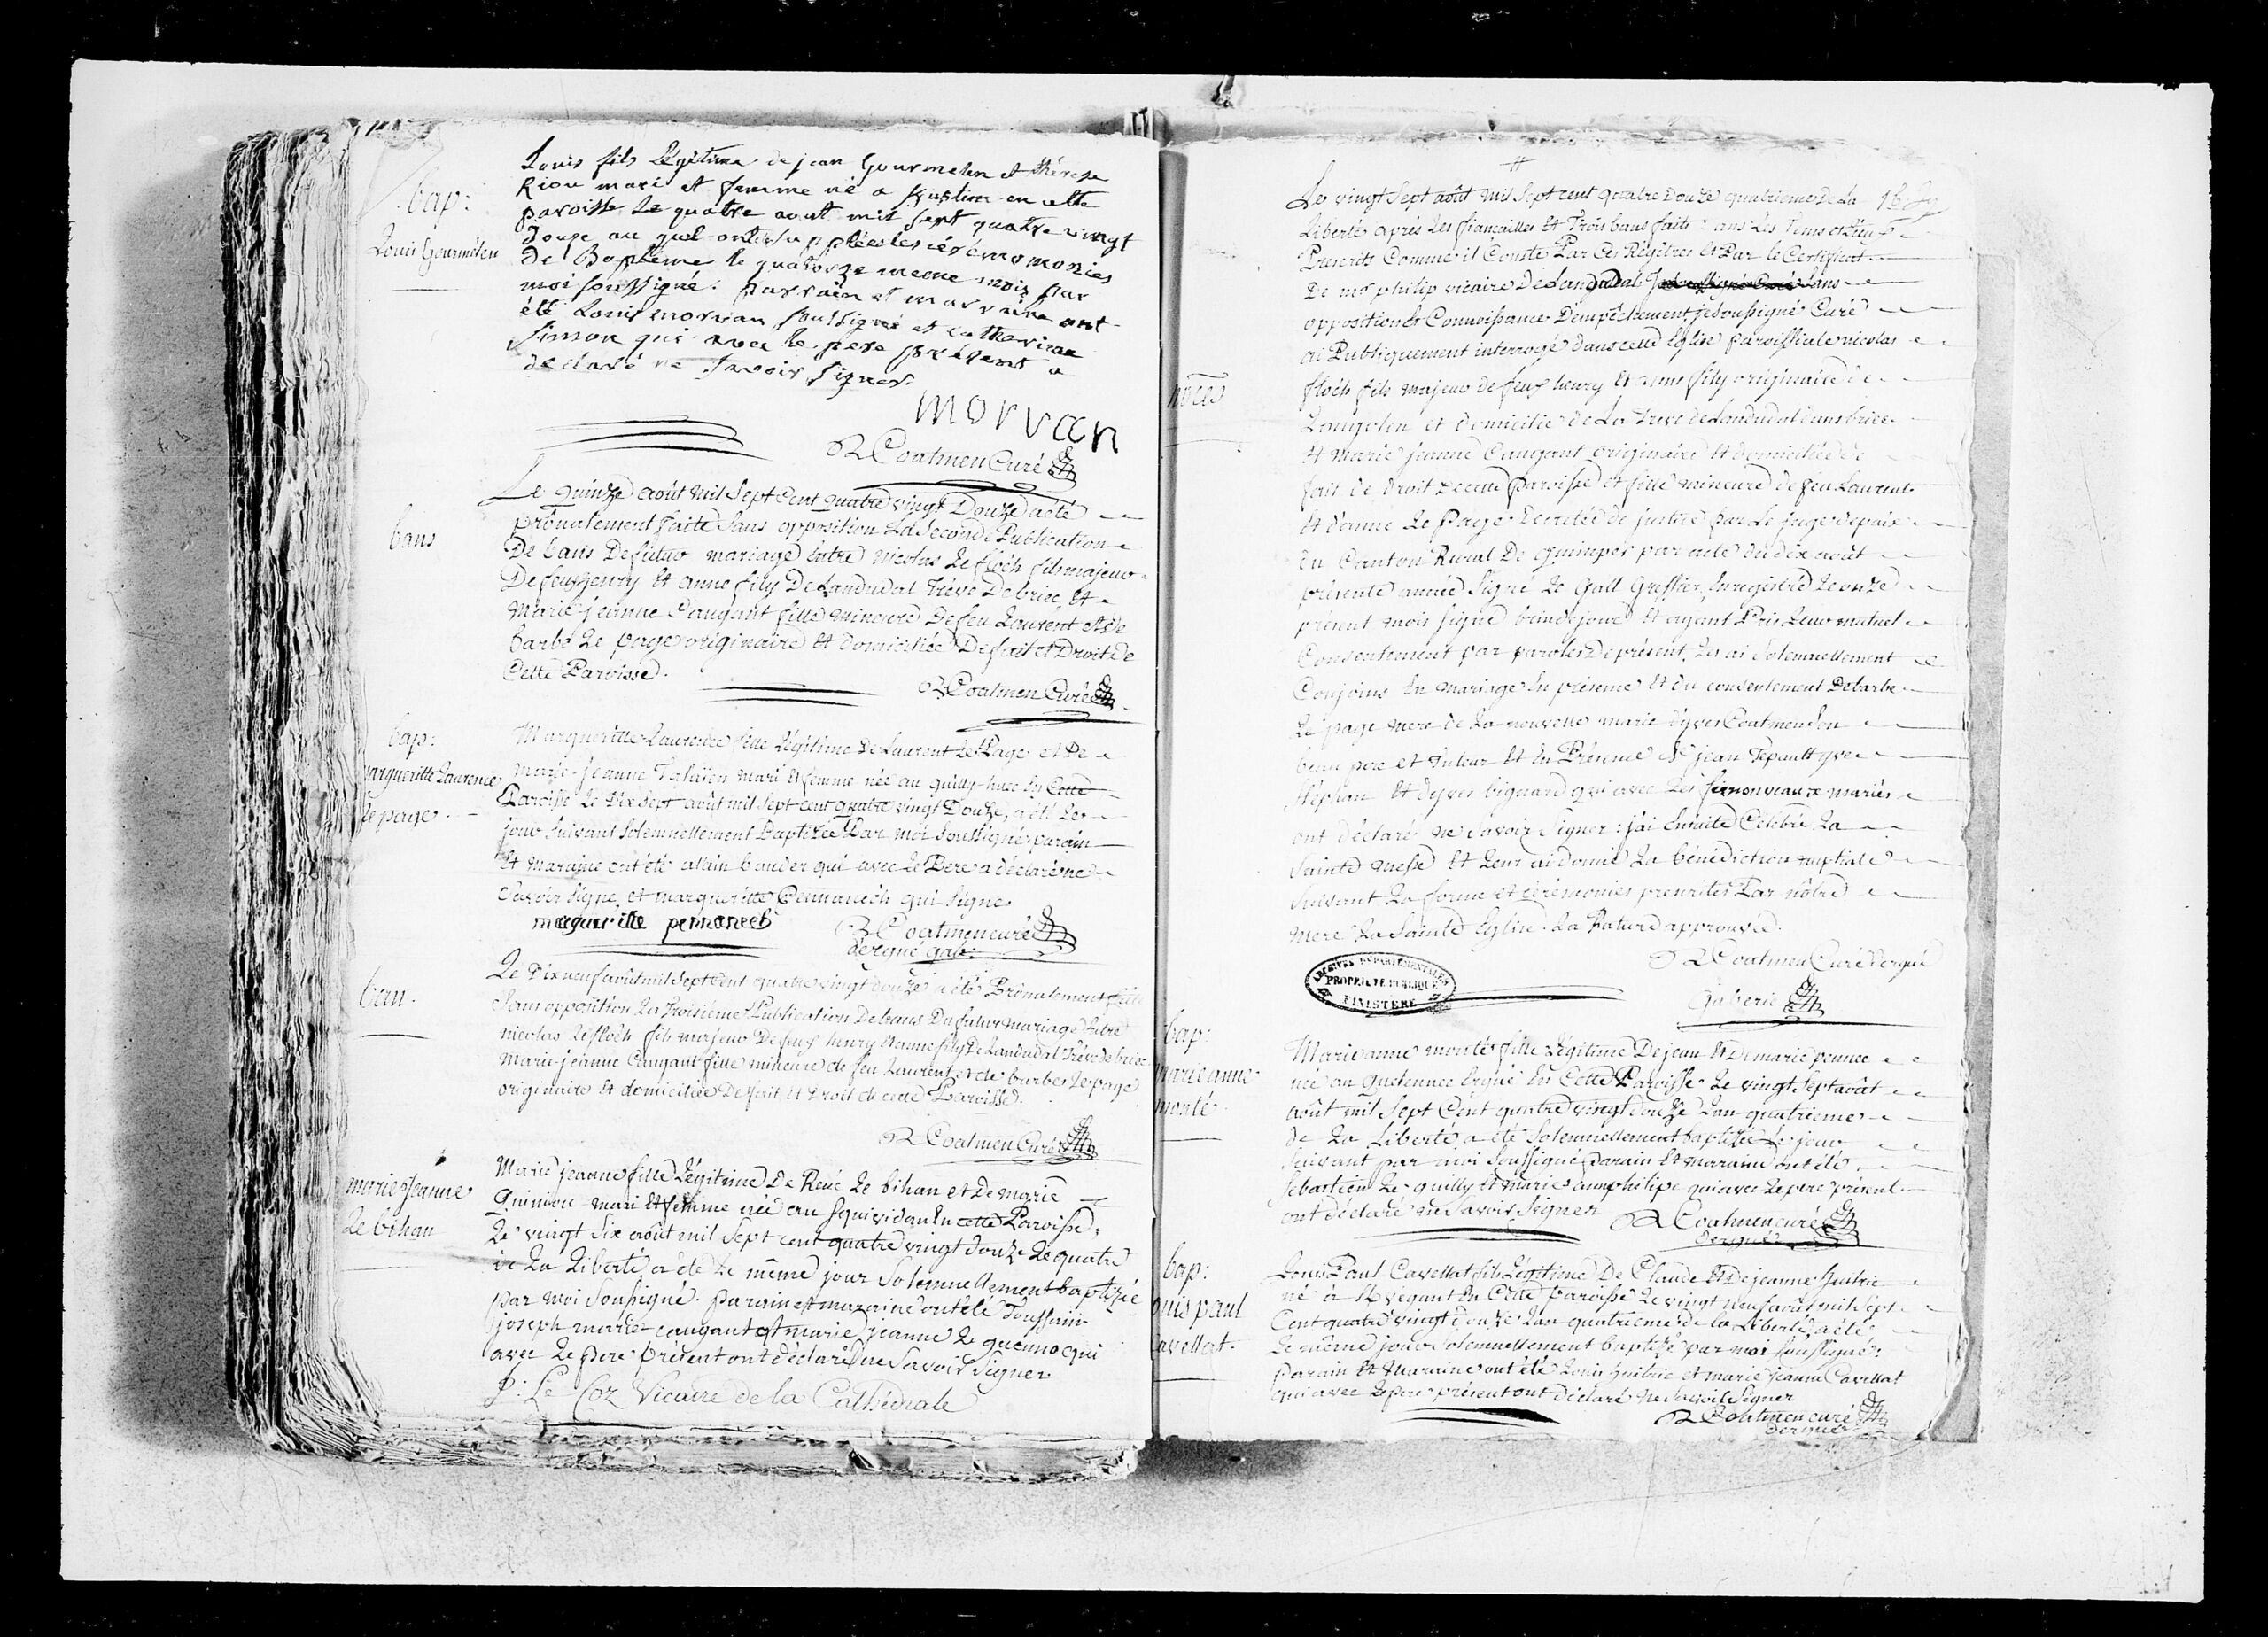 bap:
Louis Gourmelen
Louis fils Légitime de jean Gourmelen et thérese
Riou mari et femme né a Kustin en cette
paroisse le quatre aout mil sept quatre vingt
douze au quel ont supplées les cérémomonies
de Baptême le quatorze meme mois par
moi soussigné: parrain et marraine ont
été Louis morvan soussigné et catherine
Simon qui avec le pere présent a
declaré ne savoir signer.
morvan
R Coatmen Curé
bans
Le quinze août mil Sept Cent quatre vingt Douze a eté
prônalement faite Sans opposition La Seconde Publication
De bans De futur mariage Entre nicolas Le flôch fils majeur
De feus henry Et anne fily De Landudal Trève De briec, Et
Marie-jeanne Caugant fille mineure De feu Laurent et De
barbe Le page originaire Et domiciliée De fait et Droit de
Cette Paroisse.
R Coatmen Curé
bap:
margueritte Laurence
le page.
Margueritte-Laurence fille Légitime De Laurent Le Page et De
marie-jeanne Talaïen mari Et femme née au quilly-huec En Cette
Paroisse Le Dix Sept août mil sept cent quatre vingt Douze, a été Le
jour Suivant Solemnellement Baptisée Par moi Soussigné: parain
Et maraine ont été alain bander qui avec Le Pere a déclaré ne
Savoir Signe, et margueritte Pennanech qui Signe.
marguerille pennanech
R Coatmen curé
d'ergué gab:
ban.
Le Dix neuf août mil Sept Cent quatre vingt douze a été Prônalement faite
Sans opposition La Troisième Publication De bans Du futur mariage Entre
nicolas Le flôch fils majeur De feus henry Et anne fily De Landudal Trève de briec
Marie-jeanne Caugant fille mineure de feu Laurent et de barbe Le page
originaire Et domiciliée De fait Et Droit de cette Paroisse.
R Coatmen Curé
marie Jeanne
Le bihan
Marie jeanne fille Légitime De René Le bihan et De marie
Quiniou mari Et femme née au Squividan En cette Paroisse,
Le vingt Six août mil Sept cent quatre vingt douze Le quatre
de La Liberté a été Le même jour Solemnellement baptizée
par moi Soussigné. parain et maraine ont été Toussain
joseph marie caugant et marie jeanne Le guenno qui
avec Le pere présent ont déclaré ne Savoir Signer
J: Le Coz Vicaire de la Cathédrale
#
noces
Le vingt Sept août mil Sept cent quatre Douze quatrième De La
Liberté après Les fiancailles Et Trois bans faits: ans Les Tems et Lieu
Prescrits Comme il Conste Par Ces Régitres Et Par le Certificat
De mr philip vicaire De Landudal Sans
opposition Et Connoissance D'empêchement, je Soussigné Curé
ai Publiquement interrogé dans cette Eglise paroissiale nicolas
floch fils majeur de feus henry Et anne fily originaire de
Langolen et domicilié de La Treve de Landudal dans briec
Et marie jeanne Caugant originaire Et domiciliée de
fait de Droit De cette Paroisse et fille mineure de feu Laurent
Et d'anne Le Page Decretée de justice par Le juge de paix
du Canton Rural De quimper par acte du dix août
présente année Signé Le Gall Greffier, Enregistré Le onze
présent mois signé brindejonc Et ayant Pris Leur mutuel
Consentement par paroles De présent, Les ai Solemnellement
Conjoins En mariage En présence Et du consentement De barbe
Le page mere de La nouvelle mariée d'yves Coatmen Son
beau pere et Tuteur Et En Présence De jean Tépault yves
Stéphan Et d'yves bignard qui avec Les nouveaux mariés
ont déclaré ne Savoir Signer: j'ai Ensuite Célébré La
Sainte messe Et Leur ai donné La bénédiction nuptiale
Suivant La forme et cérémonies prescrites Par nôtre
mere La Sainte Eglise. La Rature approuvée.
R Coatmen Curé d'ergué
Gaberic
ARCHIVES DÉPARTEMENTALES
PROPRIÉTÉ PUBLIQUE
FINISTÈRE
bap:
marie anne
monté.
Marie anne monté fille Légitime De jean Et De marie pennec
née au Guelennec Ergué En Cette Paroisse Le vingt Sept août
août mil Sept Cent quatre vingt douze L'an quatrieme
de La Liberté a été Solemnellement baptizée Le jour
Suivant par moi Soussigné parain Et maraine ont été
Sébastien Le quilly Et marie anne philipe qui avec Le pere présent
ont déclaré ne Savoir Signer
R Coatmen curé
d'ergué
bap:
ouis paul
Cavellat.
Louis Paul Cavellat fils Légitime De Claude Et De jeanne huitric
né à Kvégant En Cette Paroisse Le vingt neuf août mil Sept
Cent quatre vingt douze L'an quatrieme de la Liberté, a été
Le même jour Solemnellement baptisé par moi Soussigné:
Parain Et maraine ont été Louis huitric et marie jeanne Cavellat
qui avec Le pere présent ont déclaré ne Savoir Signer
R Coatmen curé
d'ergué